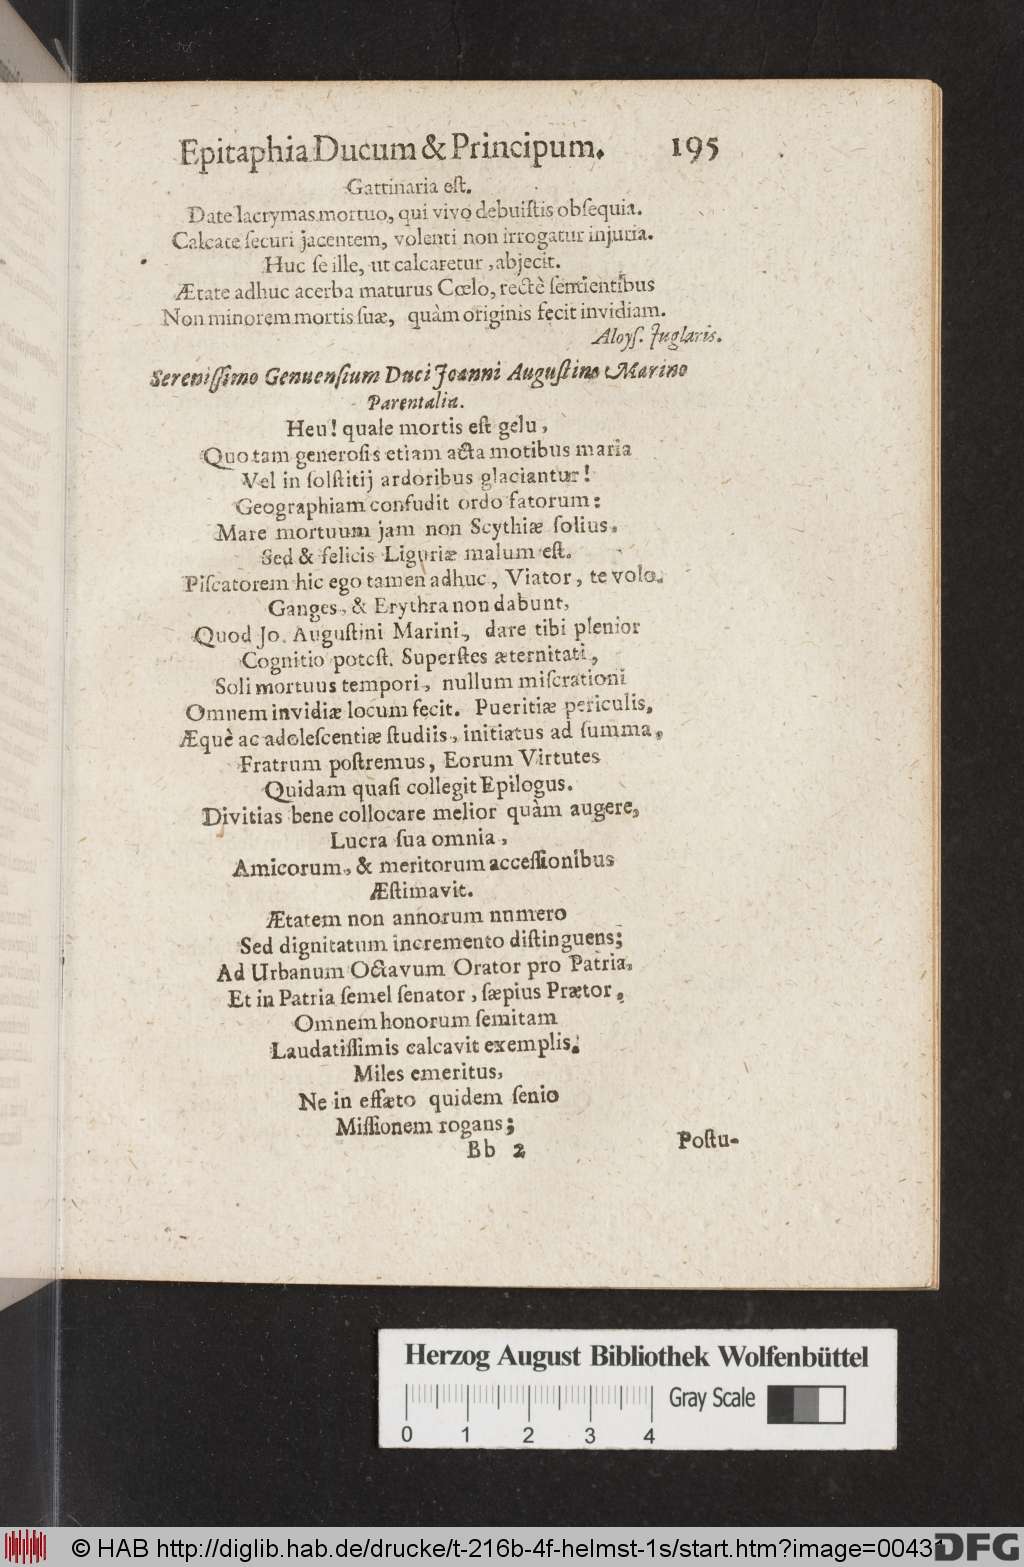 Epitaphia Ducum & Principum. 195
Gattinaria eſt.
Date lacrymas mortuo, qui vivo debuiſtis obſequia.
Calcate ſecuri jacentem, volenti non irrogatur injuria.
Huc ſe ille, ut calcaretur, abjecit.
Ætate adhuc acerba maturus Cœlo, rectè ſentientibus
Non minorem mortis ſuæ, quàm originis fecit invidiam.
Aloyſ. Juglaris.
Sereniſſimo Genuenſium Duci Joanni Auguſtino Marino
Parentalia.
Heu! quale mortis eſt gelu,
Quo tam generoſis etiam acta motibus maria
Vel in ſolſtitij ardoribus glaciantur!
Geographiam confudit ordo fatorum:
Mare mortuum jam non Scythiæ ſolius.
Sed & felicis Liguriæ malum eſt.
Piſcatorem hic ego tamen adhuc, Viator, te volo.
Ganges, & Erythra non dabunt,
Quod Jo. Auguſtini Marini, dare tibi plenior
Cognitio poteſt. Superſtes æternitati,
Soli mortuus tempori, nullum miſerationi
Omnem invidiæ locum fecit. Pueritiæ periculis,
Æquè ac adoleſcentiæ ſtudiis, initiatus ad ſumma,
Fratrum poſtremus, Eorum Virtutes
Quidam quaſi collegit Epilogus.
Divitias bene collocare melior quàm augere,
Lucra ſua omnia,
Amicorum, & meritorum acceſſionibus
Æſtimavit.
Ætatem non annorum nnmero
Sed dignitatum incremento diſtinguens;
Ad Urbanum Octavum Orator pro Patria,
Et in Patria ſemel ſenator, ſæpius Prætor,
Omnem honorum ſemitam
Laudatiſſimis calcavit exemplis.
Miles emeritus,
Ne in effæto quidem ſenio
Miſſionem rogans;
Bb 2 Poſtu-
Herzog August Bibliothek Wolfenbüttel
Gray Scale
0 1 2 3 4
© HAB http://diglib.hab.de/drucke/t-216b-4f-helmst-1s/start.htm?image=00431
DFG